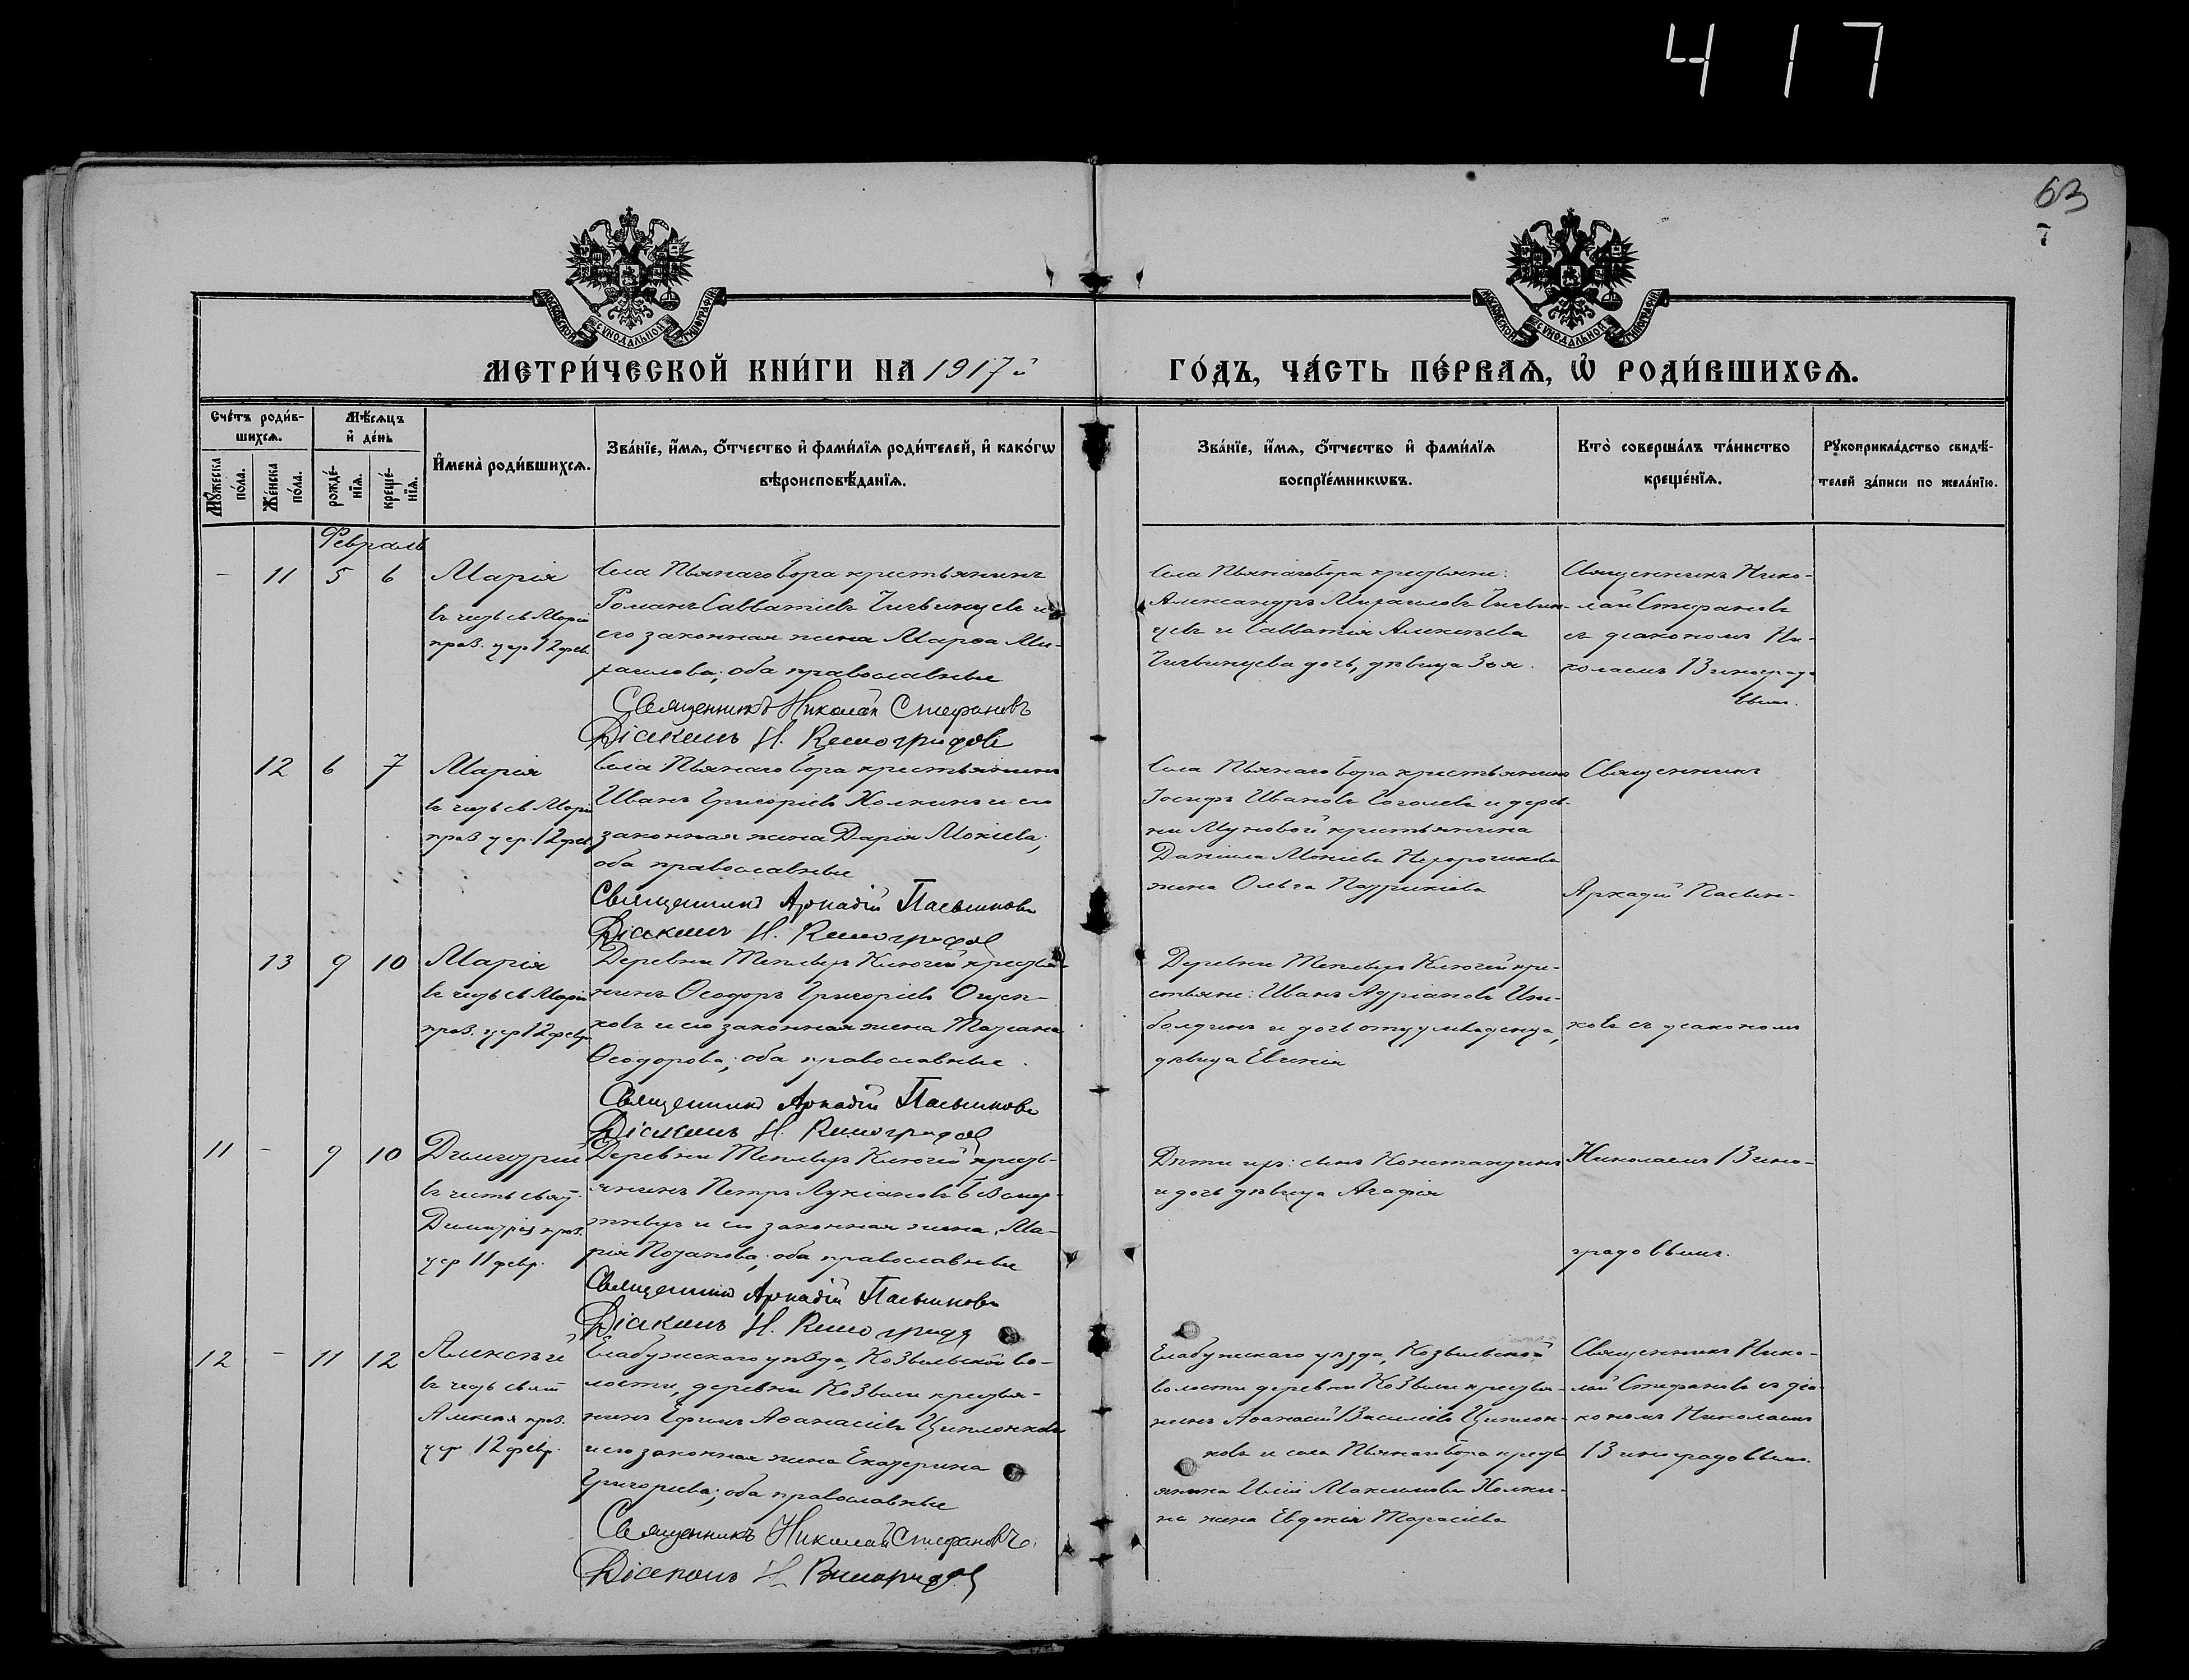 4 1 7
63
7
МОСКОВСКОЙ СѴНОДАЛЬНОЙ ТИПОГРАФІИ
МОСКОВСКОЙ СѴНОДАЛЬНОЙ ТИПОГРАФІИ
МЕТРИ́ЧЕСКОЙ КНИ́ГИ НА 1917й
ГО́ДЪ, ЧА́СТЬ ПЕ́РВАѦ, Ѡ҆ РОДИ́ВШИХСѦ.
Сче́тъ роди́в-
шихсѧ.
Мѣ́сѧцъ
и҆ де́нь
Мꙋ́жеска
по́ла.
Же́нска
по́ла.
рожде́-
нїѧ.
креще́-
нїѧ.
И҆мена̀ роди́вшихсѧ.
Зва́нїе, и҆́мѧ, ѻ҆́тчество и҆ фами́лїѧ роди́телей, и҆ како́гѡ
вѣроисповѣ́данїѧ.
Зва́нїе, и҆́мѧ, ѻ҆́тчество и҆ фами́лїѧ
воспрїе́мникѡвъ.
Кто̀ соверша́лъ та́инство
креще́нїѧ.
Рꙋкоприкла́дство свидѣ́-
телей за́писи по жела́нїю.
Февраль
- 11 5 6 Марія
въ честь св Маріи
праз. цер 12 фев.
Села Пьянаго Бора крестьянинъ
Романъ Савватіевъ Чичвинцевъ и
его законная жена Марѳа Ми-
хаилова; оба православные
Священникъ Николай Стефановъ
Діаконъ Н. Виноградовъ
Села Пьянаго Бора крестьяне:
Александръ Михаиловъ Чичвин-
цевъ и Савватія Алексѣева
Чичвинцева дочь, дѣвица Зоя.
Священникъ Нико-
лай Стефановъ
съ діакономъ Ни-
колаемъ Виноградо
вымъ.
12 6 7 Марія
въ честь св Маріи
праз цер. 12 фев
Села Пьянаго Бора крестьянинъ
Иванъ Григоріевъ Колкинъ и его
законная жена Дарія Мокіева;
оба православные
Священникъ Аркадій Пасынковъ
Діаконъ Н. Виноградовъ
Села Пьянаго Бора крестьянинъ
Іосифъ Ивановъ Соголевъ и дерев-
ни Муновой крестьянина
Даніила Мокіева
жена Ольга
Священникъ
Аркадій Пасын-
13 9 10 Марія
въ честь св Маріи
праз. цер 12 февр
Деревни Теплыхъ Ключей крестья-
нинъ Ѳеодоръ Григоріевъ
ковъ и его законная жена Татіана
Ѳеодорова; оба православные.
Священникъ Аркадій Пасынковъ
Діаконъ Н. Виноградовъ
Деревни Теплыхъ Ключей кре-
стьяне: Иванъ Адріановъ Ши-
болдинъ и дочь отцу младенца,
дѣвица Евгенія
ковъ съ діакономъ
11 - 9 10 Димитрій
въ честь свят.
Димитрія праз.
цер 11 февр.
Деревни Теплыхъ Ключей кресть-
янинъ Петръ Лукіановъ
и его законная жена Ма-
рія Потапова; оба православные
Священникъ Аркадій Пасынковъ
Діаконъ Н. Виноградовъ
Дѣти ихъ: сынъ Константинъ
и дочь дѣвица Агафія
Николаемъ Вино-
градовымъ.
12 - 11 12 Алексѣй
въ честь свят
Алексѣя праз.
цер 12 февр.
Елабужскаго уѣзда, Козыльской во-
лости, деревни Козыли крестья-
нинъ Ефимъ Аѳанасіевъ Цыплонковъ
и его законная жена Екатерина
Григоріева; оба православные
Священникъ Николай Стефановъ.
Діаконъ Н Виноградовъ
Елабужскаго уѣзда, Козыльской
волости деревни Козыли крестья-
нинъ Аѳанасій Василіевъ Цыплон-
ковъ и села Пьянаго Бора кресть
янина Иліи Максимова Колки-
на жена Евдокія Тарасіева
Священникъ Нико-
лай Стефановъ съ діа-
кономъ Николаемъ
Виноградовымъ.